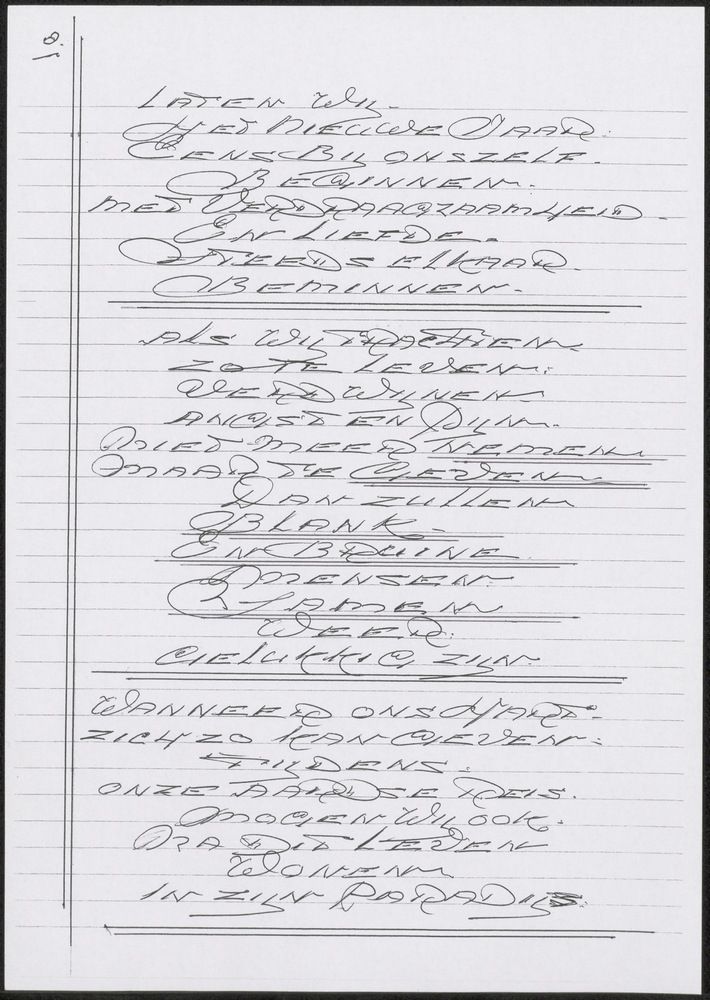 8.
LATEN WIJ.
HET NIEUWE JAAR.
EENS BIJ ONSZELF.
BEGINNEN.
MET VERDRAAGZAAMHEID.
EN LIEFDE.
STEEDS ELKAAR.
BEMINNEN.
ALS WIJ TRACHTEN
ZO TE LEVEN:
VERDWIJNEN
ANGST EN PIJN.
NIET MEER NEMEN
MAAR TE GEVEN
DAN ZULLEN
BLANK.
EN BRUINE.
MENSEN
SAMEN
WEER.
GELUKKIG ZIJN.
WANNEER ONS HART.
ZICH ZO KAN GEVEN:
TIJDENS.
ONZE AARDSE REIS.
MOGEN WIJ OOK.
NA DIT LEVEN
WONEN
IN ZIJN PARADIJS.